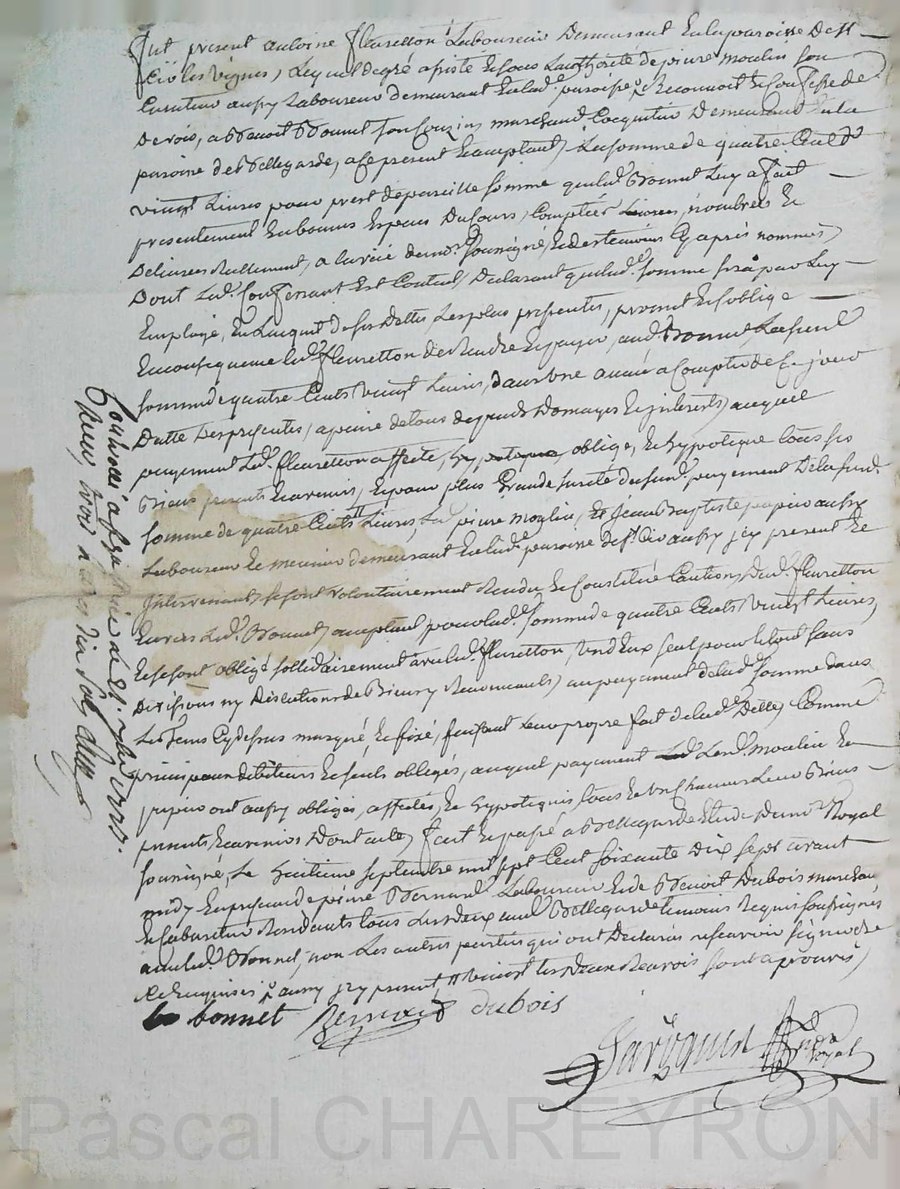 fut present antoine fleuretton Laboureur Demeurant En la paroisse De St
Cir les vignes, Lequel de gré assisté Et sous L'authorité de pierre moulin son
Curateur aussy Laboureur demeurant En lad.e paroisse, Reconnoit Et Confesse de
Devoir, a Benoit Bonnet son Cousin marchand Coquetier Demeurant En la
paroisse de Bellegarde, a ce present Et acceptant, La somme de quatre Cent
vingt Livres pour prest de pareille somme que led. Bonnet Luy a fait
presentement En bonnes Especes Du Cours, Comptées nombrées Et
Delivrées Reellement, a la veüe du no.re soussigné, Et des temoins Cy après nommés,
Dont Led. Confessant Est Content, Declarant que lad.e somme sera par Luy
Employée, En L'acquit de ses Dettes Les plus pressentes, promet Et s'oblige
En consequence led. fleuretton de Rendre Et payer, aud. Bonnet, La susd.
somme de quatre Cents vingt Livres, dans une année a Compter de Ce jour
Datte Des presentes, a peine de tous depends Domages Et interests, auquel
payement Led. fleuretton affecte, oblige, Et hypoteque tous ses
Biens presents Et avenirs, Et pour plus Grande sureté du susd. payement De la susd.
somme de quatre Cents " Livres, Led. pierre moulin, Et Jean Baptiste papier aussy
Laboureur Et meunier demeurant En lad.e paroisse de St. Cir aussy icy present Et
intervenant, se sont volontairement Rendu Et Constitué Cautions, dud. fleuretton
Envers Led. Bonnet, acceptant pour lad.e somme de quatre Cents vingt Livres,
Et se sont obligé sollidairement avec led. fleuretton, un D'eux seul pour le tout sans
Division ny Discution de Biens y Renonceants, au payement de lad.e somme dans
Le tems Cy dessus marqué, Et fixé, faisant Leur propre fait de lad.e Dette, Comme
principaux debiteurs Et seuls obligés, auquel payement Lesd. moulin Et
papier ont aussy obligés, affectés, Et hypotequés, tous Et un Chacuns Leur Biens
presents Et avenirs Dont acte, fait Et passé a Bellegarde Etude du no.re Royal
soussigné, Le huitième septembre mil sept Cent soixante Dix sept avant
midy En presence de pierre Bernard Laboureur Et de Benoit Dubois marchand
Et Cabaretier Residants tous Les deux aud. Bellegarde temoins Requis soussignés
avec led. Bonnet, non Les autres parties qui ont Declarés ne scavoir signer de
Ce Enquises, aussy icy present " vingt les deux Renvois sont approuvés,
bonnet Bernard dubois
no.re royal
Controllé a
Reçu trois Livres dix sols
Pascal CHAREYRON